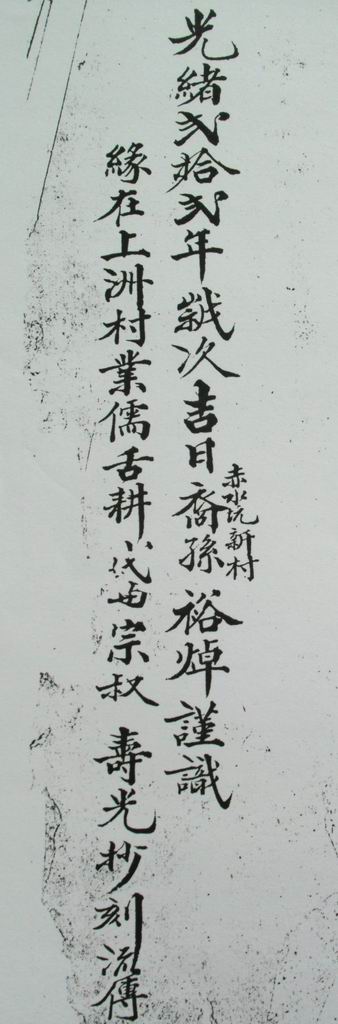 光緒弍拾弍年歲次吉日裔孫裕焯謹識
赤水坑新村
緣在上洲村業儒舌耕代與宗叔壽光抄刻流傳